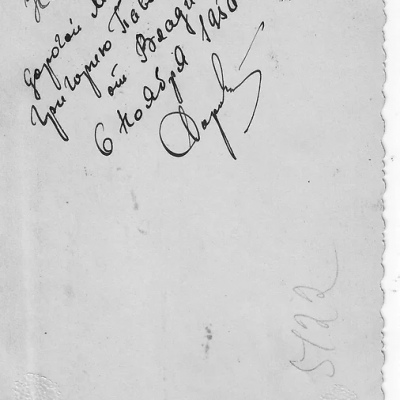 Дорогой М
Григорию Пав
от Влади
6 ноября 1950
5122